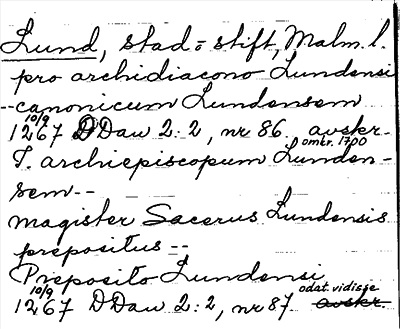 Lund, stad o stift, Malm. l.
pro archidiacono Lundensi
--canonicum Lundensem
10/9
1267 DDan 2:2, nr 86. avskr.
omkr. 1700
T. archiepiscopum Lunden-
sem--
magister Sacerus Lundensis
prepositus --
Preposito Lundensi
10/9 odat. vidisse
1267 DDan 2:2, nr 87 avskr.